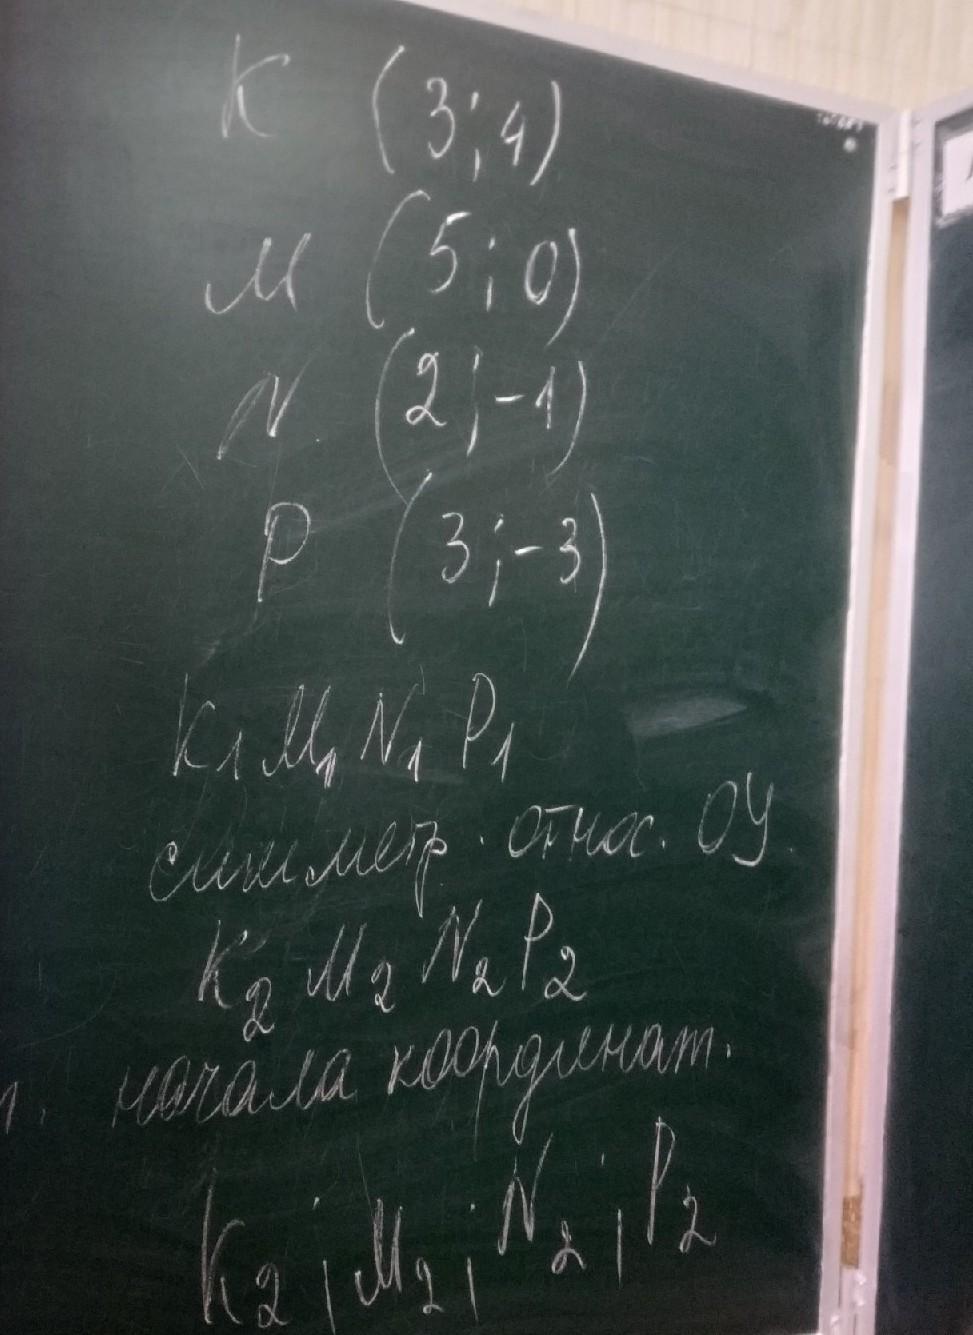 K (3; 4)
M (5; 0)
N (2; -1)
P (3; -3)
K₁ M₁ N₁ P₁
симметр. относ. ОУ.
K₂ M₂ N₂ P₂
начала координат.
K₂; M₂; N₂; P₂